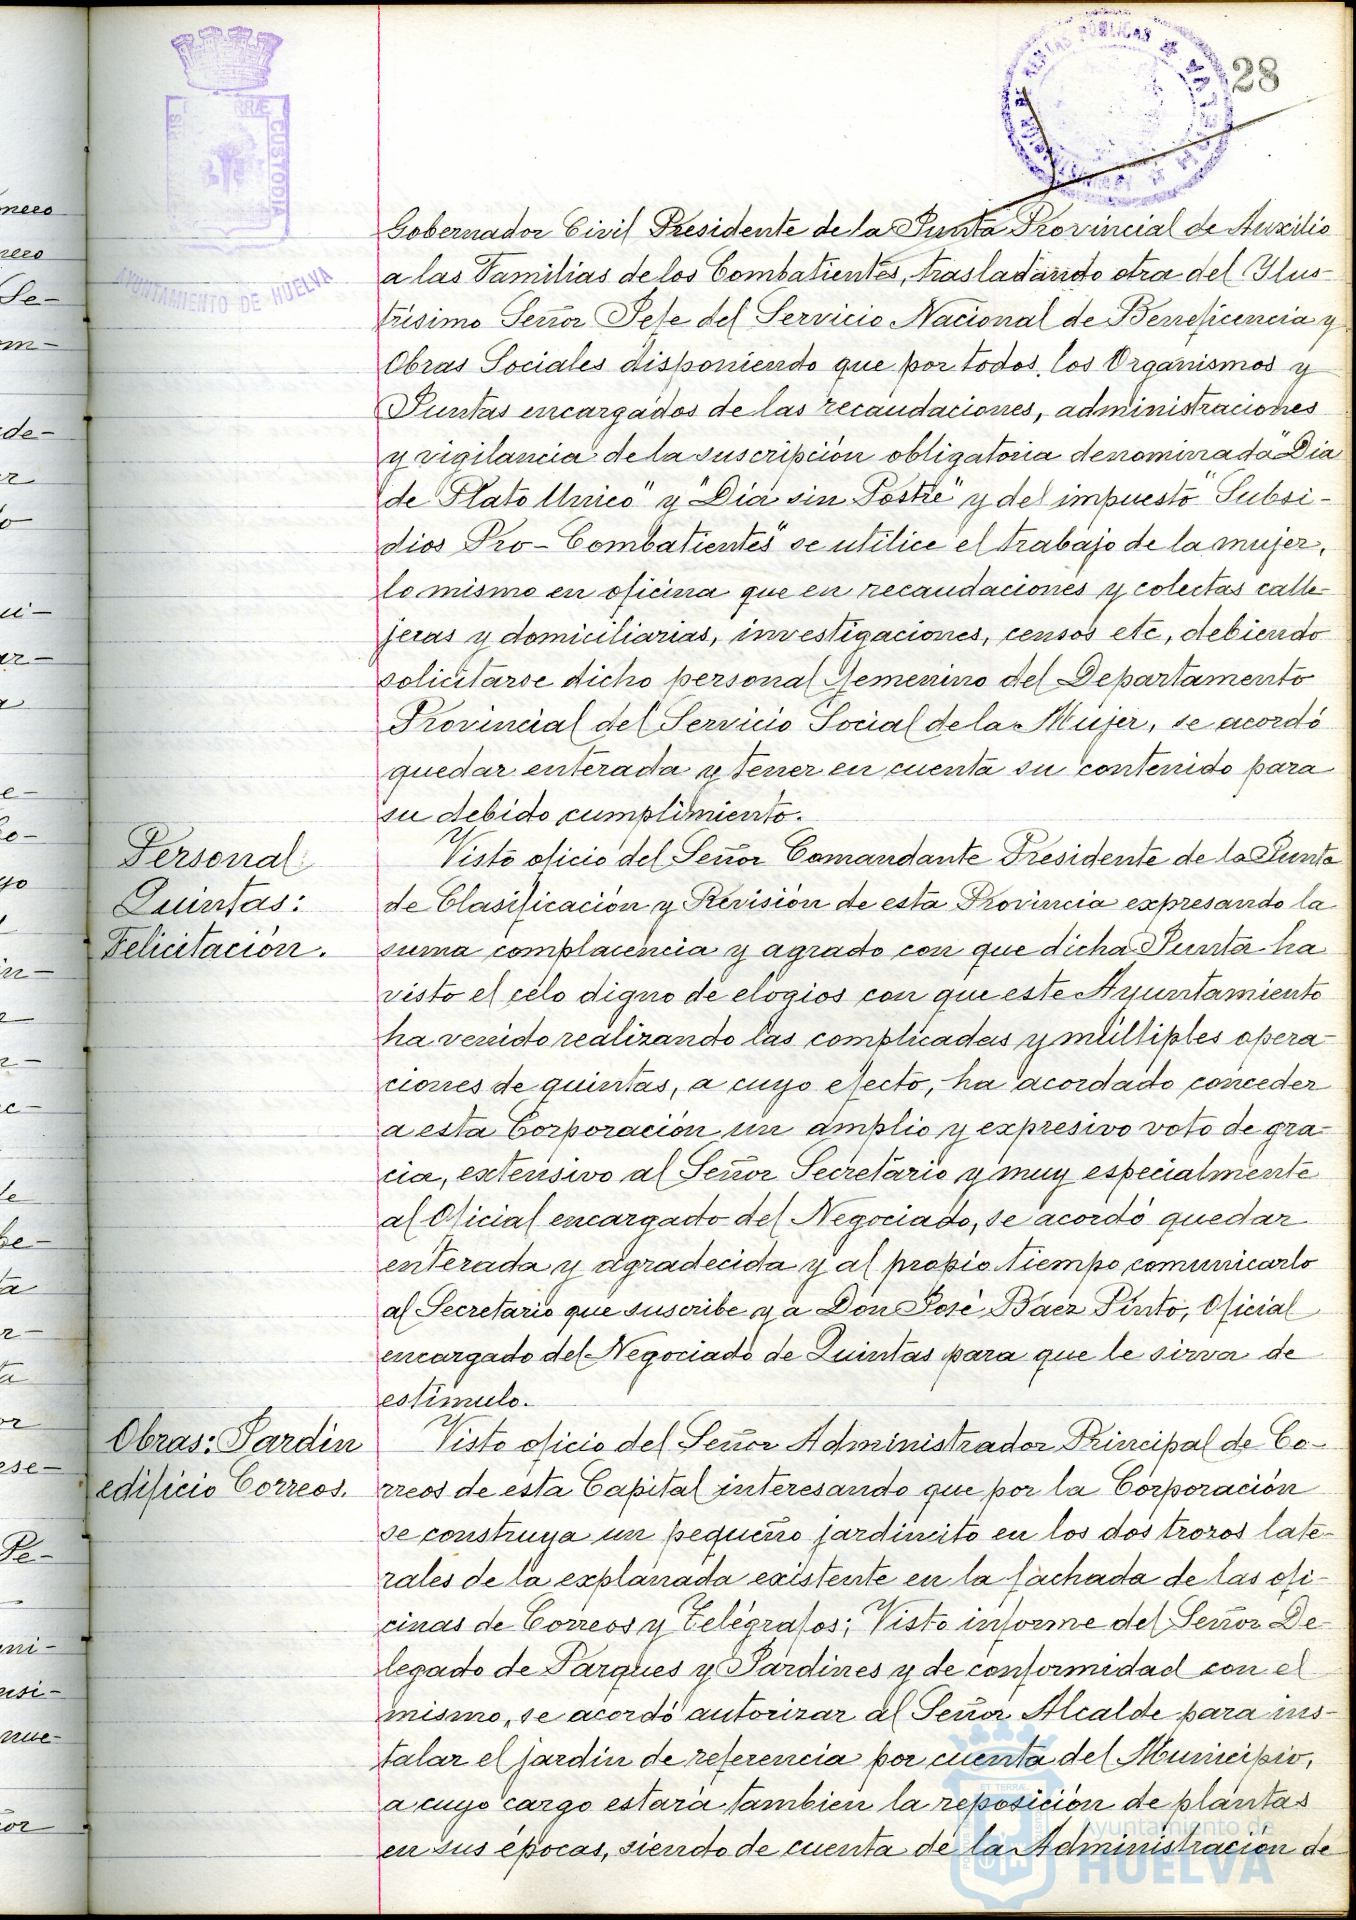 28
AYUNTAMIENTO DE HUELVA
CUSTODIA
RENTAS PÚBLICAS
HUELVA
Gobernador Civil Presidente de la Junta Provincial de Auxilio
a las Familias de los Combatientes, trasladando otra del Ilus-
trísimo Señor Jefe del Servicio Nacional de Beneficencia y
Obras Sociales disponiendo que por todos los Organismos y
Juntas encargados de las recaudaciones, administraciones
y vigilancia de la suscripción obligatoria denominada "Dia
de Plato Unico" y "Día sin Postre" y del impuesto "Subsi-
dios Pro-Combatientes" se utilice el trabajo de la mujer,
lo mismo en oficina que en recaudaciones y colectas calle-
jeras y domiciliarias, investigaciones, censos etc, debiendo
solicitarse dicho personal femenino del Departamento
Provincial del Servicio Social de la Mujer, se acordó
quedar enterada y tener en cuenta su contenido para
su debido cumplimiento.
Personal
Quintas:
Felicitación.
Visto oficio del Señor Comandante Presidente de la Junta
de Clasificación y Revisión de esta Provincia expresando la
suma complacencia y agrado con que dicha Junta ha
visto el celo digno de elogios con que este Ayuntamiento
ha venido realizando las complicadas y múltiples opera-
ciones de quintas, a cuyo efecto, ha acordado conceder
a esta Corporación un amplio y expresivo voto de gra-
cia, extensivo al Señor Secretario y muy especialmente
al Oficial encargado del Negociado, se acordó quedar
enterada y agradecida y al propio tiempo comunicarlo
al Secretario que suscribe y a Don José Báez Pinto, Oficial
encargado del Negociado de Quintas para que le sirva de
estímulo.
Obras: Jardín
edificio Correos.
Visto oficio del Señor Administrador Principal de Co-
rreos de esta Capital interesando que por la Corporación
se construya un pequeño jardincito en los dos trozos late-
rales de la explanada existente en la fachada de las ofi-
cinas de Correos y Telégrafos; Visto informe del Señor De-
legado de Parques y Jardines y de conformidad con el
mismo, se acordó autorizar al Señor Alcalde para ins-
talar el jardín de referencia por cuenta del Municipio,
a cuyo cargo estará tambien la reposición de plantas
en sus épocas, siendo de cuenta de la Administración de
Ayuntamiento de
HUELVA